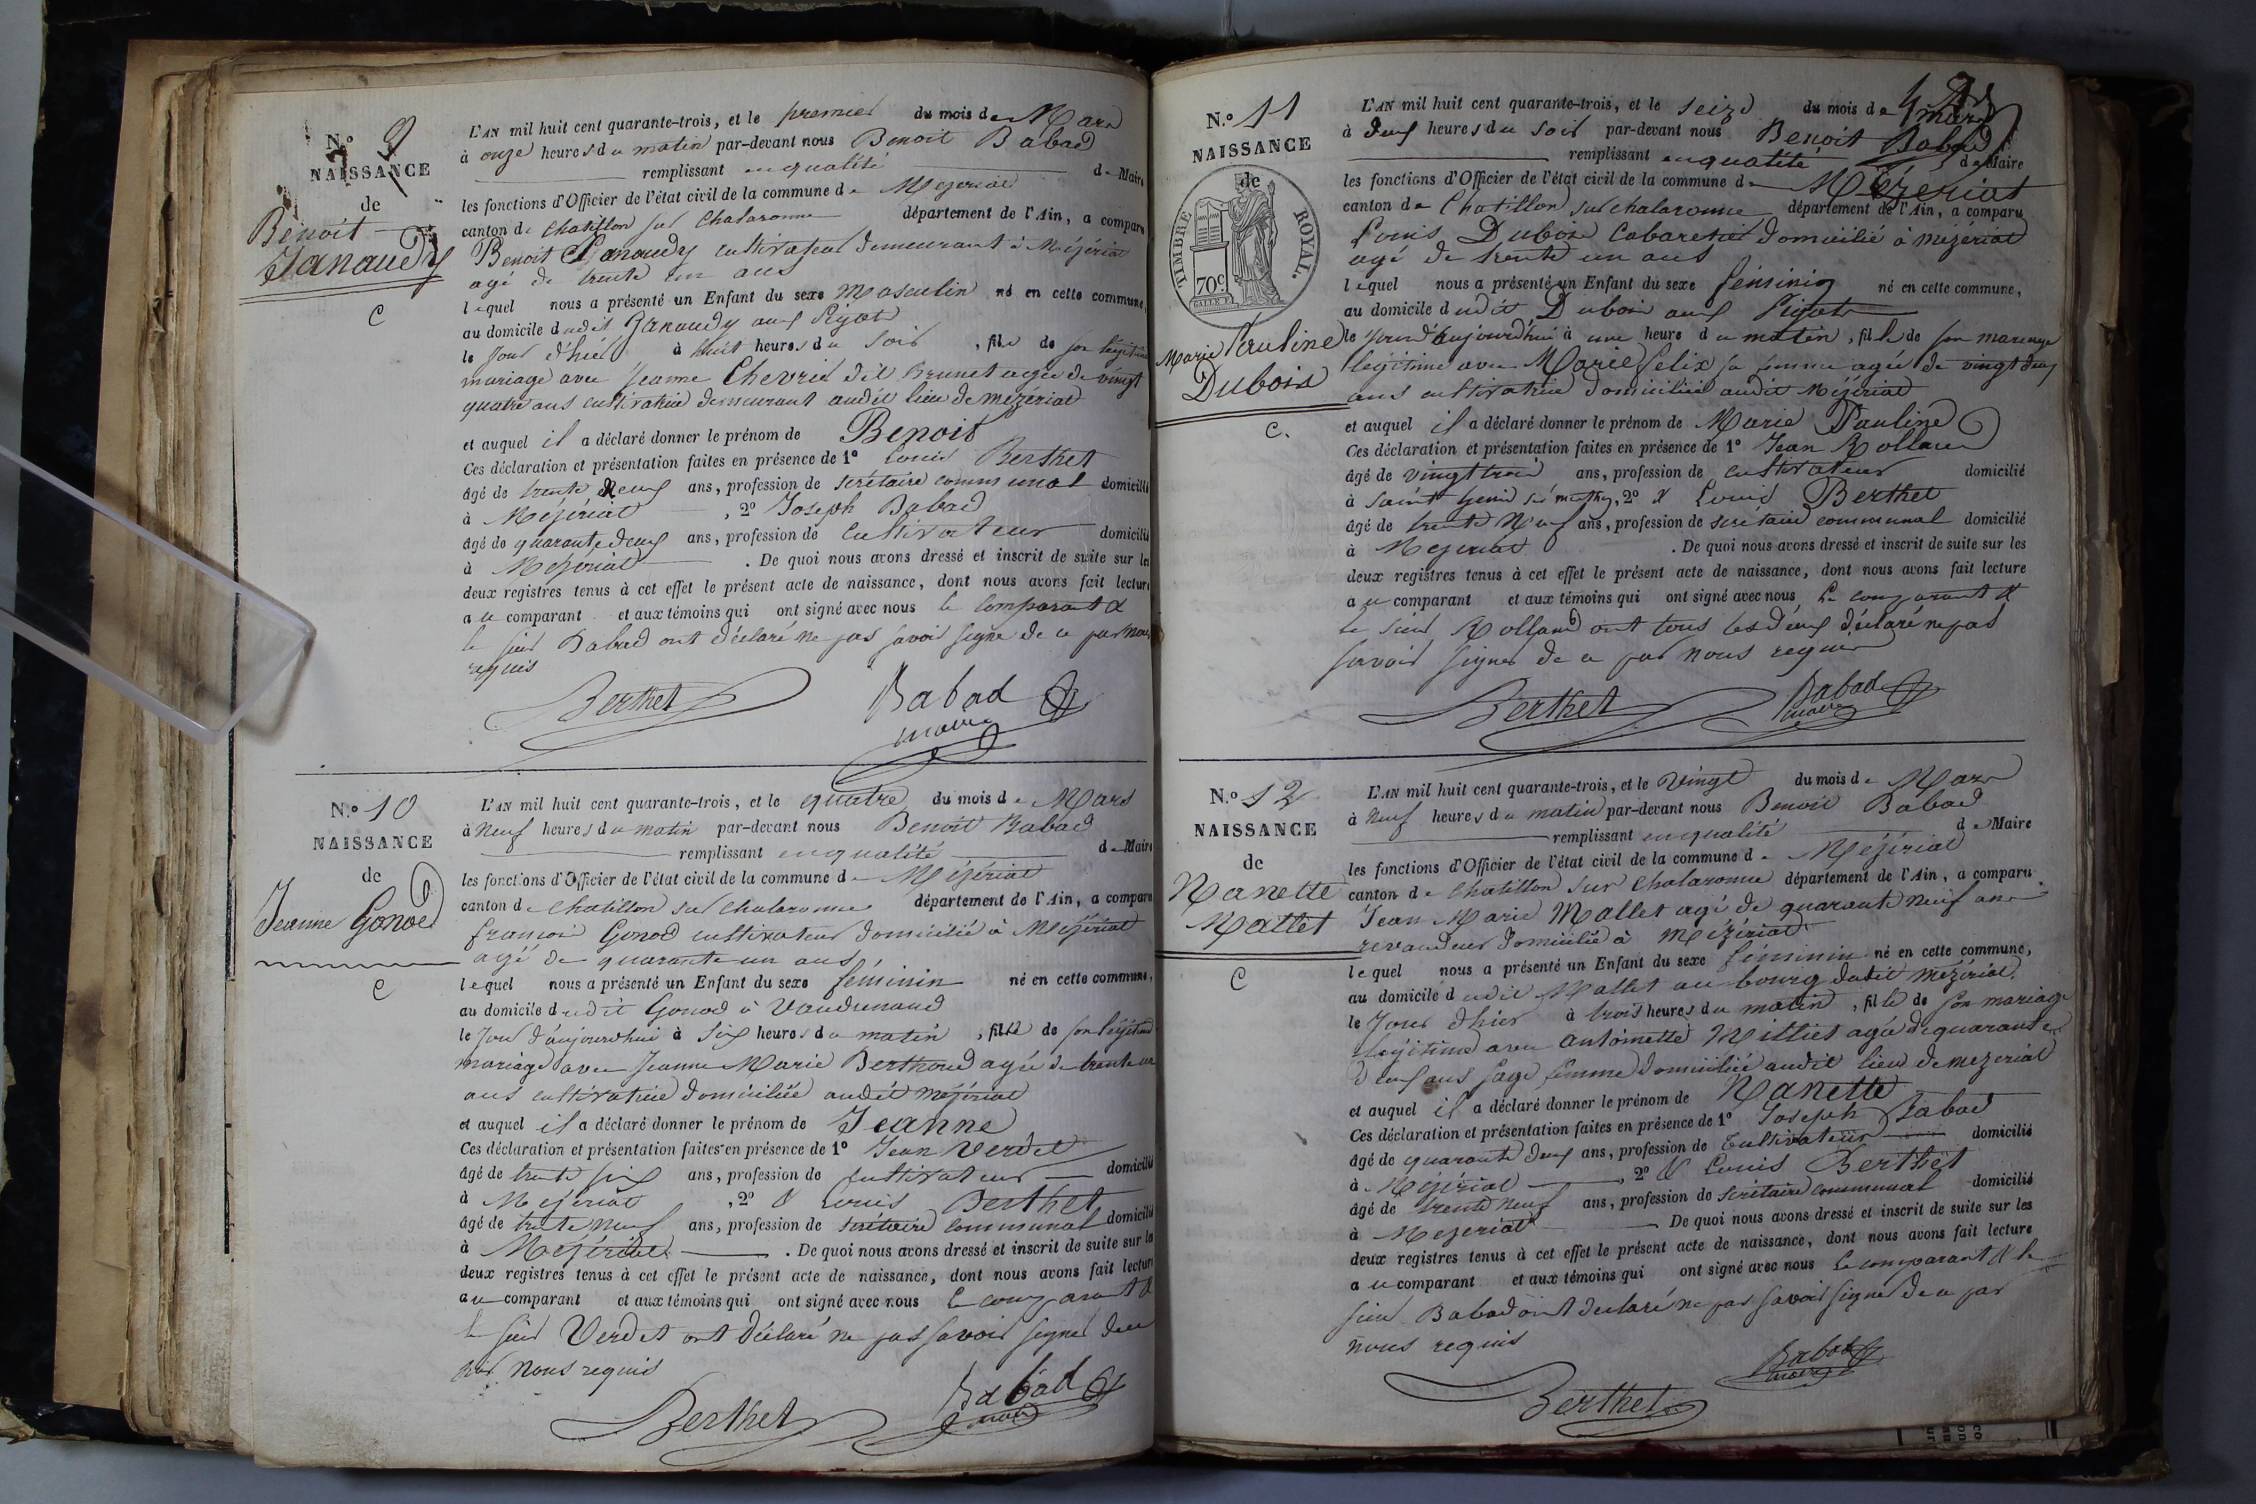 N.º 9
NAISSANCE
de
Benoit
Janaudy
C
L'AN mil huit cent quarante-trois, et le premier du mois de Mars
à onze heures du matin par-devant nous Benoit Babad
remplissant en qualité de Maire
les fonctions d'Officier de l'état civil de la commune de Mézériat
canton de Chatillon sur Chalaronne département de l'Ain, a comparu
Benoit Janaudy cultivateur demeurant à Mézériat
agé de trente un ans
lequel nous a présenté un Enfant du sexe Masculin né en cette commune,
au domicile dudit Janaudy aux
le Jour d'hier à huit heures du Soir, fils de son légitime
mariage avec Jeanne Chevrier dit Brunet agée de vingt
quatre ans cultivatrice demeurant audit lieu de mézériat
et auquel il a déclaré donner le prénom de Benoit
Ces déclaration et présentation faites en présence de 1º Louis Berthet
âgé de trente neuf ans, profession de secrétaire communal domicilié
à Mézériat, 2º Joseph Babad
âgé de quarante deux ans, profession de Cultivateur domicilié
à Mézériat. De quoi nous avons dressé et inscrit de suite sur les
deux registres tenus à cet effet le présent acte de naissance, dont nous avons fait lecture
au comparant et aux témoins qui ont signé avec nous le comparant &
le sieur Babad ont déclaré ne pas savoir signe de ce par nous
requis
Berthet
Babad
maire
N.º 10
NAISSANCE
de
Jeanne Gonod
C
L'AN mil huit cent quarante-trois, et le quatre du mois de Mars
à Neuf heures du matin par-devant nous Benoit Babad
remplissant en qualité de Maire
les fonctions d'Officier de l'état civil de la commune de Mézériat
canton de Chatillon sur Chalaronne département de l'Ain, a comparu
françois Gonod cultivateur domicilié à Mézériat
agé de quarante un ans
lequel nous a présenté un Enfant du sexe féminin né en cette commune,
au domicile dudit Gonod à
le Jour d'aujourd'hui à Six heures du matin, fille de son légitime
mariage avec Jeanne Marie Berthoud agée de trente un
ans cultivatrice domiciliée audit Mézériat
et auquel il a déclaré donner le prénom de Jeanne
Ces déclaration et présentation faites en présence de 1º Jean Verdet
âgé de trente six ans, profession de cultivateur domicilié
à Mézériat, 2º & Louis Berthet
âgé de trente Neuf ans, profession de secrétaire communal domicilié
à Mézériat. De quoi nous avons dressé et inscrit de suite sur les
deux registres tenus à cet effet le présent acte de naissance, dont nous avons fait lecture
au comparant et aux témoins qui ont signé avec nous le comparant &
le sieur Verdet ont déclaré ne pas savoir signer de ce
par Nous requis
Berthet
Babad
maire
N.º 11
NAISSANCE
de
TIMBRE ROYAL.
70c.
Marie Pauline
Dubois
C.
L'AN mil huit cent quarante-trois, et le seize du mois de mars
à deux heures du soir par-devant nous Benoit Babad
remplissant en qualité de Maire
les fonctions d'Officier de l'état civil de la commune de Mézériat
canton de Chatillon sur chalaronne département de l'Ain, a comparu
Louis Dubois Cabaretier domicilié à mézériat
agé de trente un ans
lequel nous a présenté un Enfant du sexe féminin né en cette commune,
au domicile dudit Dubois aux
le jour d'aujourd'hui à une heure du matin, fille de son mariage
légitime avec Marie felix sa femme agée de vingt deux
ans cultivatrice domiciliée audit Mézériat
et auquel il a déclaré donner le prénom de Marie Pauline
Ces déclaration et présentation faites en présence de 1º Jean Rolland
âgé de vingt trois ans, profession de cultivateur domicilié
à saint genis sur menthon, 2º & Louis Berthet
âgé de trente Neuf ans, profession de secrétaire communal domicilié
à Mézériat. De quoi nous avons dressé et inscrit de suite sur les
deux registres tenus à cet effet le présent acte de naissance, dont nous avons fait lecture
au comparant et aux témoins qui ont signé avec nous Le comparant &
le sieur Rolland ont tous les deux déclaré ne pas
savoir signer de ce par nous requis
Berthet
Babad
maire
N.º 12
NAISSANCE
de
Nanette
Mallet
C
L'AN mil huit cent quarante-trois, et le Vingt du mois de Mars
à Neuf heures du matin par-devant nous Benoit Babad
remplissant en qualité de Maire
les fonctions d'Officier de l'état civil de la commune de Mézériat
canton de Chatillon sur Chalaronne département de l'Ain, a comparu
Jean Marie Mallet agé de quarante neuf ans
revandeur domicilié à Mézériat
lequel nous a présenté un Enfant du sexe féminin né en cette commune,
au domicile dudit Mallet au bourg dudit mézériat
le Jour d'hier à trois heures du matin, fille de son mariage
légitime avec Antoinette Millet agée de quarante
deux ans sage femme domiciliée audit lieu de mezeriat
et auquel il a déclaré donner le prénom de Nanette
Ces déclaration et présentation faites en présence de 1º Joseph Babad
âgé de quarante deux ans, profession de Cultivateur domicilié
à Mézériat, 2º & Louis Berthet
âgé de trente neuf ans, profession de secrétaire communal domicilié
à Mezeriat De quoi nous avons dressé et inscrit de suite sur les
deux registres tenus à cet effet le présent acte de naissance, dont nous avons fait lecture
au comparant et aux témoins qui ont signé avec nous Le comparant & le
sieur Babad ont déclaré ne pas savoir signer de ce par
nous requis
Berthet
Babad
maire